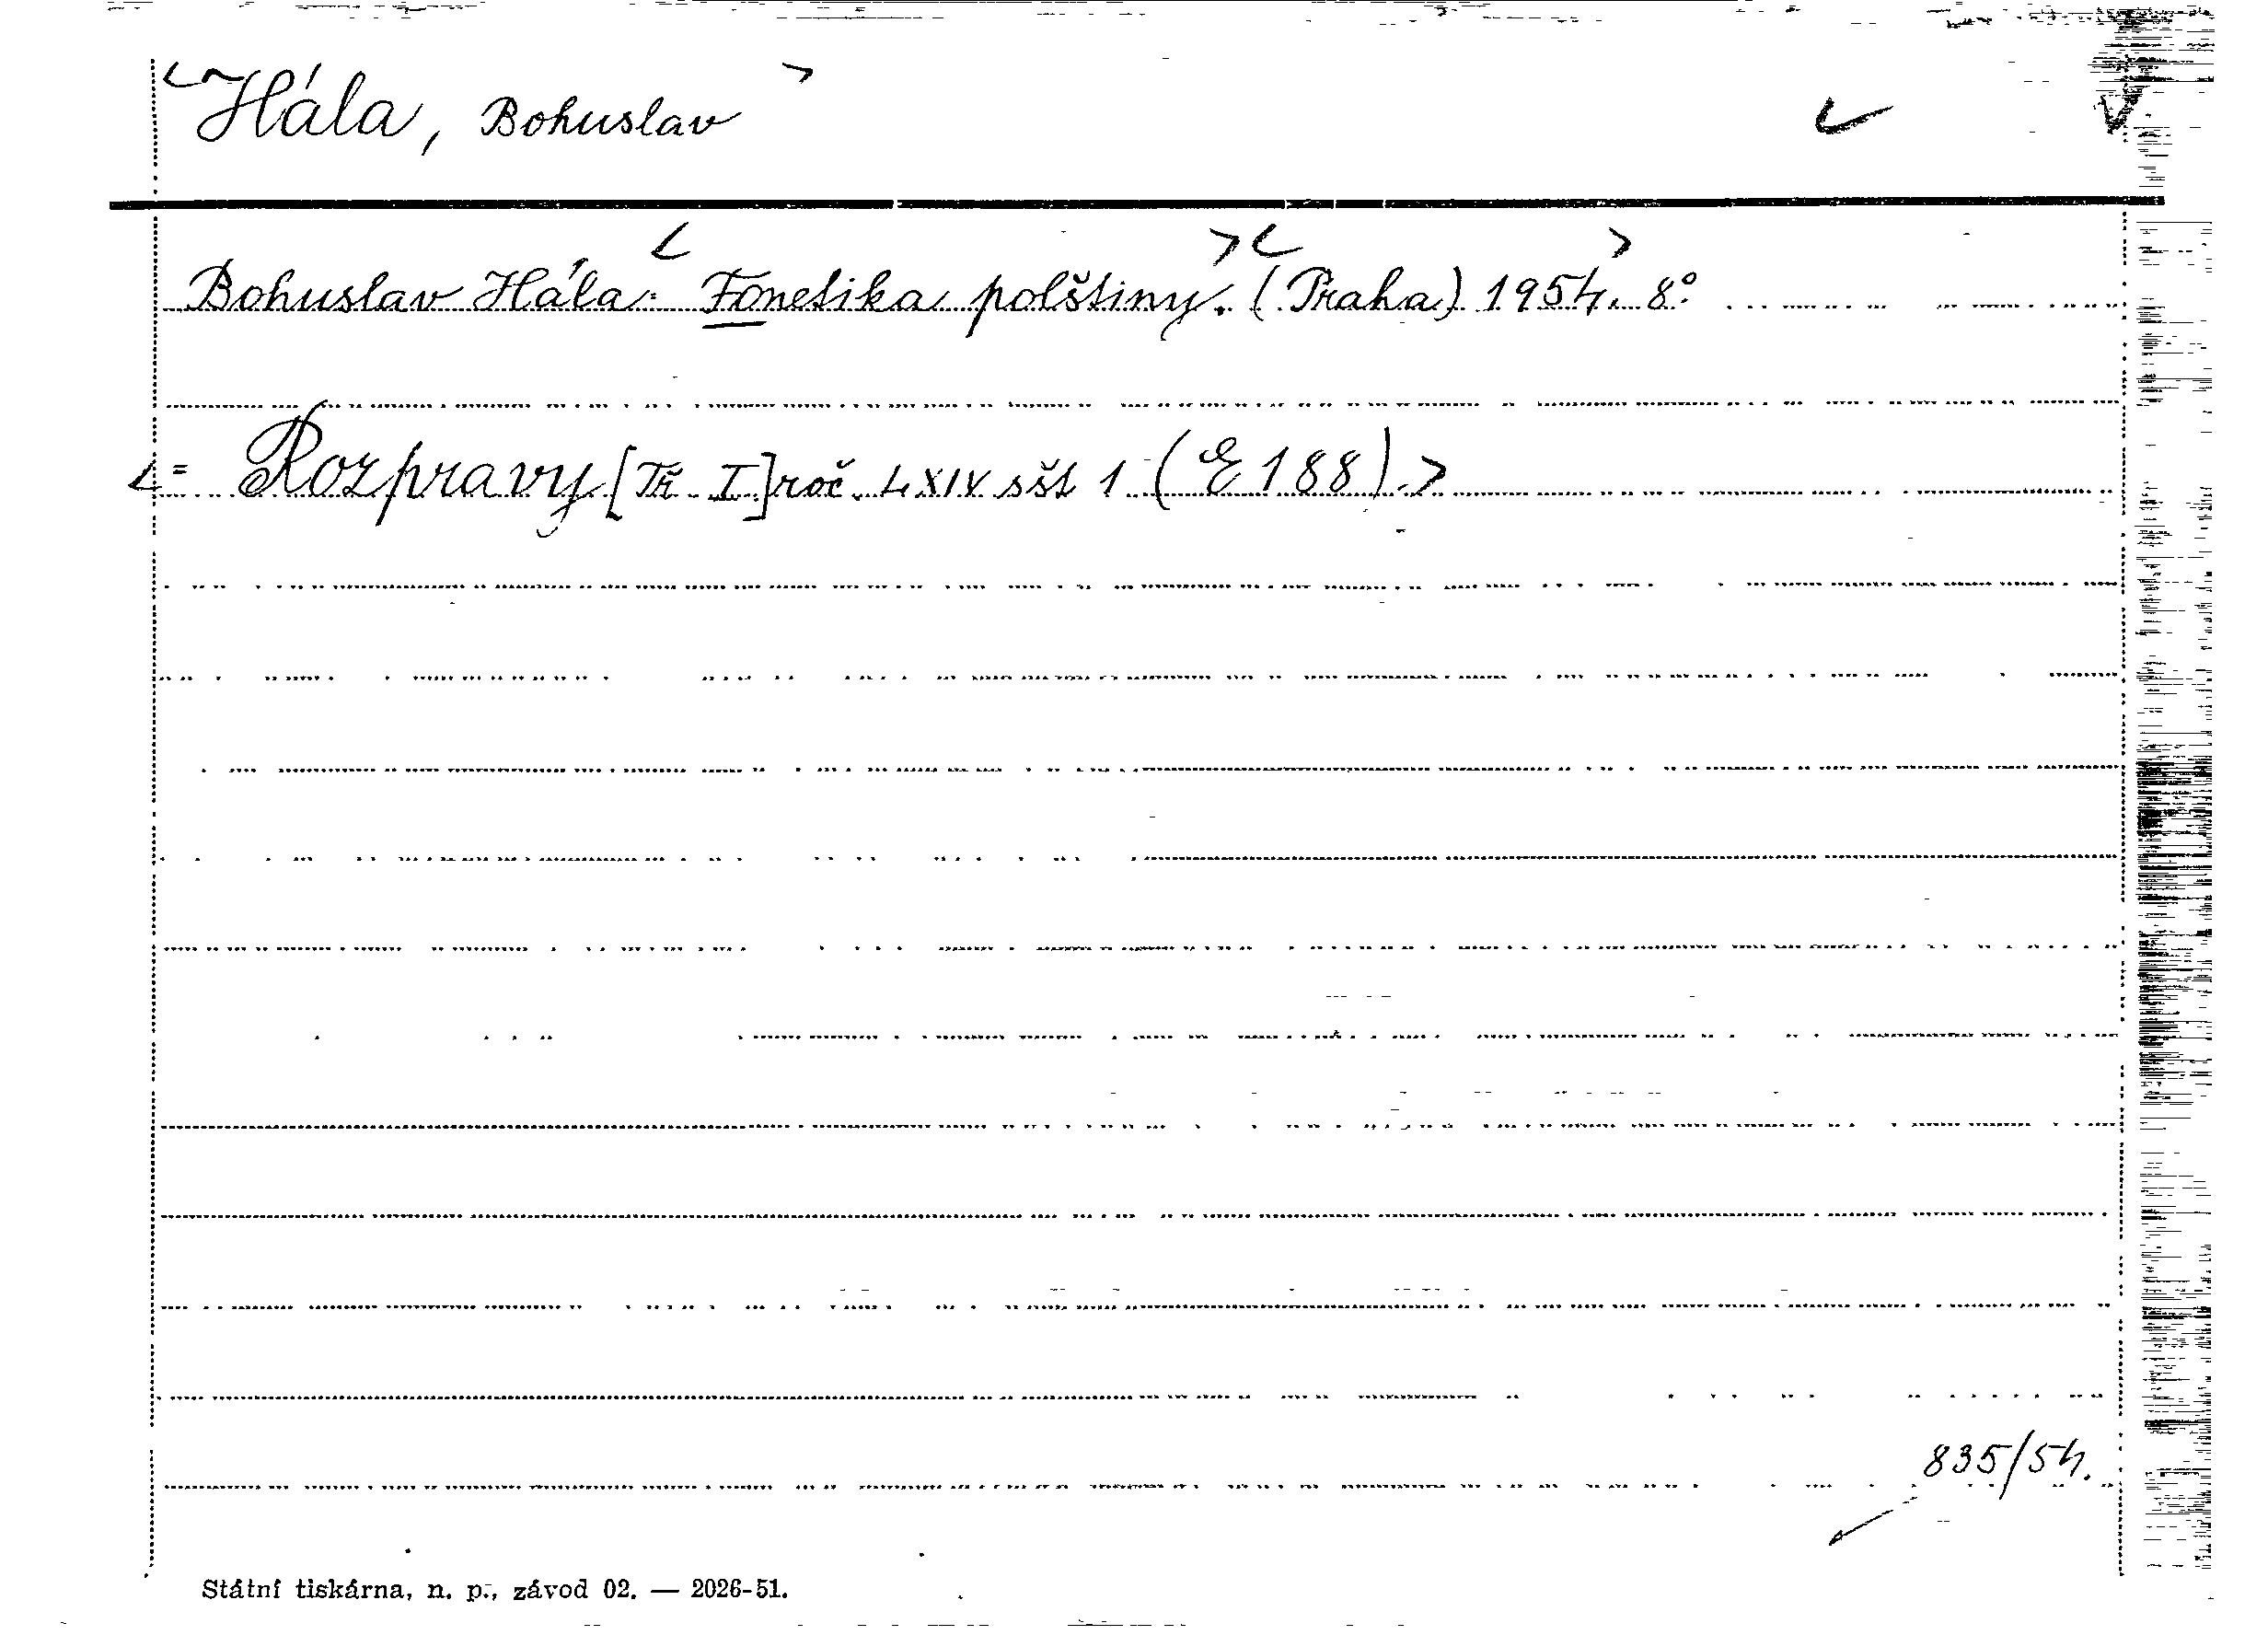 < Hála, Bohuslav >
Bohuslav Hála: Fonetika polštiny. (Praha) 1954. 8°
<= Rozpravy [Tř. I] roč. LXIV sšt 1 (E 188). >
835/54.
Státní tiskárna, n. p., závod 02. — 2026-51.